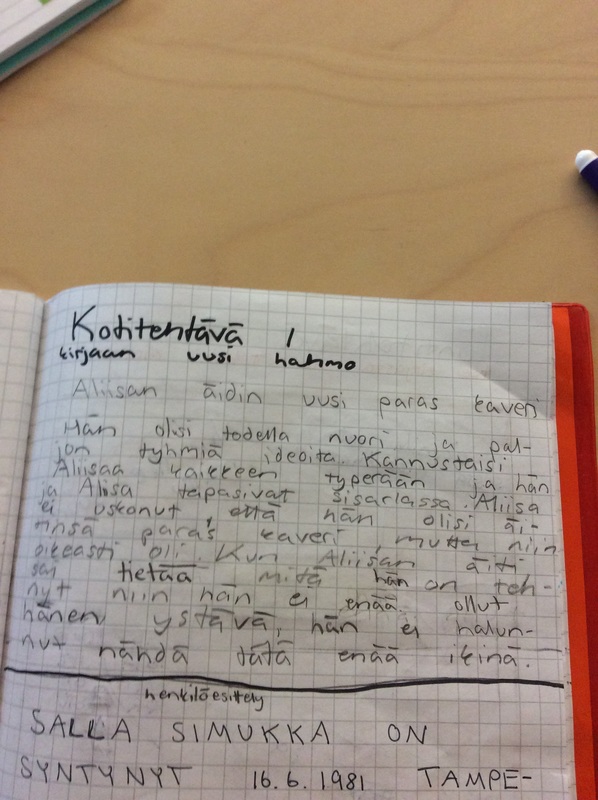 Kotitehtävä 1
kirjaan uusi hahmo
Aliisan äidin uusi paras kaveri
Hän olisi todella nuori ja pal-
jon tyhmiä ideoita. Kannustaisi
Aliisaa kaikkeen typerään ja hän
ja Aliisa teipasivat sisarlassa. Aliisa
ei uskonut että hän olisi äi-
tinsä paras kaveri, mutta niin
oikeasti oli. Kun Aliisan äiti
sai tietää mitä hän on teh-
nyt niin hän ei enää ollut
hänen ystävä, hän ei halun-
nut nähdä tätä enää ikinä.
henkilöesittely
SALLA SIMUKKA ON
SYNTYNYT 16.6.1981 TAMPE-